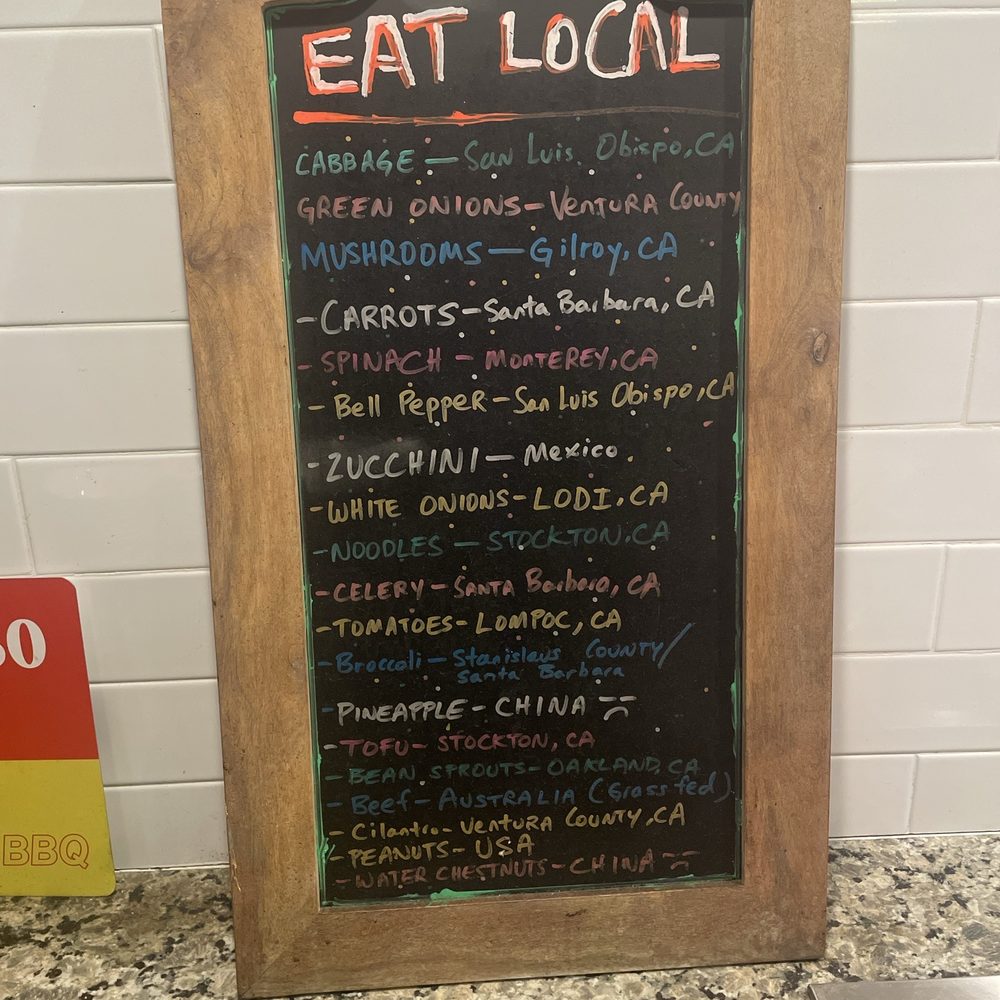 EAT LOCAL
CABBAGE — San Luis Obispo, CA
GREEN ONIONS - VENTURA COUNTY
MUSHROOMS — Gilroy, CA
- CARROTS - Santa Barbara, CA
- SPINACH - MONTEREY, CA
- Bell PEPPER - San Luis Obispo, CA
- ZUCCHINI — Mexico
- WHITE ONIONS - LODI, CA
- NOODLES — STOCKTON, CA
- CELERY - SANTA Barbara, CA
- TOMATOES - LOMPOC, CA
- Broccoli - Stanislaus COUNTY/
Santa Barbara
- PINEAPPLE - CHINA
- TOFU - STOCKTON, CA
- BEAN SPROUTS - OAKLAND, CA
- Beef - AUSTRALIA (Grass fed)
- Cilantro - VENTURA COUNTY, CA
- PEANUTS - USA
- WATER CHESTNUTS - CHINA
BBQ